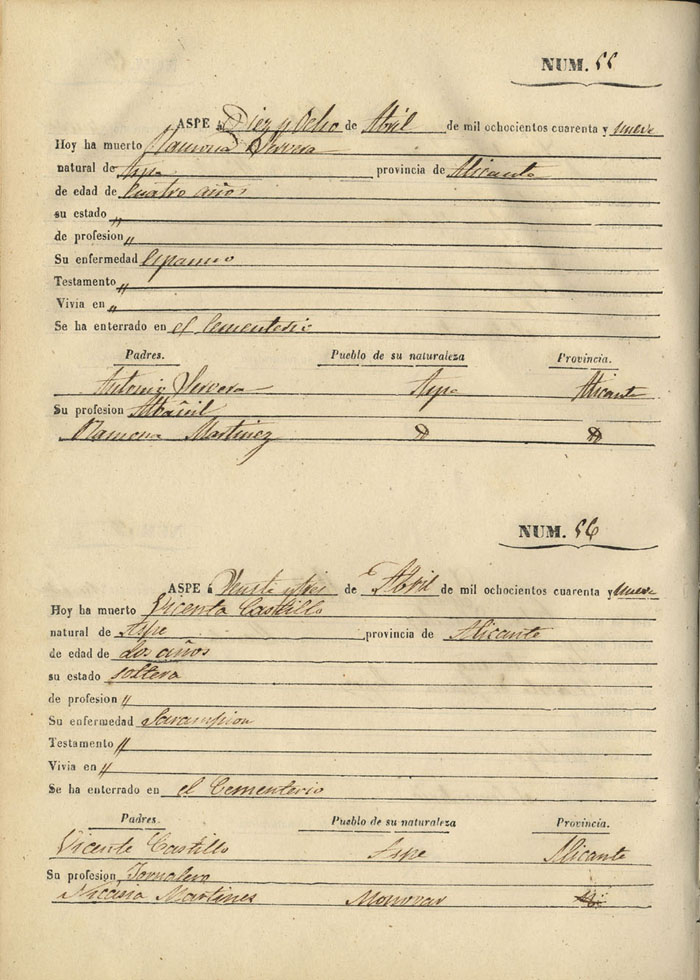 NUM. 55
ASPE á Diez y Ocho de Abril de mil ochocientos cuarenta y nueve
Hoy ha muerto Ramona Cervera
natural de Aspe provincia de Alicante
de edad de Cuatro años
su estado "
de profesion "
Su enfermedad espasmo
Testamento "
Vivia en "
Se ha enterrado en el Cementerio
Padres. Pueblo de su naturaleza Provincia.
Antonio Cervera Aspe Alicante
Su profesion Albañil
Ramona Martinez
NUM. 56
ASPE á Veinte y tres de Abril de mil ochocientos cuarenta y nueve
Hoy ha muerto Vicenta Castillo
natural de Aspe provincia de Alicante
de edad de dos años
su estado soltera
de profesion "
Su enfermedad Sarampion
Testamento "
Vivia en "
Se ha enterrado en el Cementerio
Padres. Pueblo de su naturaleza Provincia.
Vicente Castillo Aspe Alicante
Su profesion Jornalero
Nicasia Martines Monovar